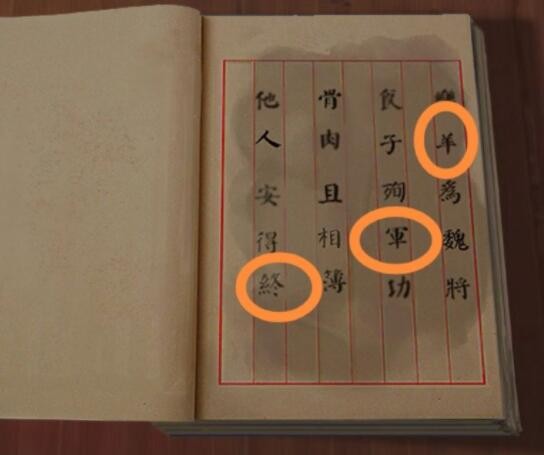 樂羊爲魏將
食子殉軍功
骨肉且相簿
他人安得終